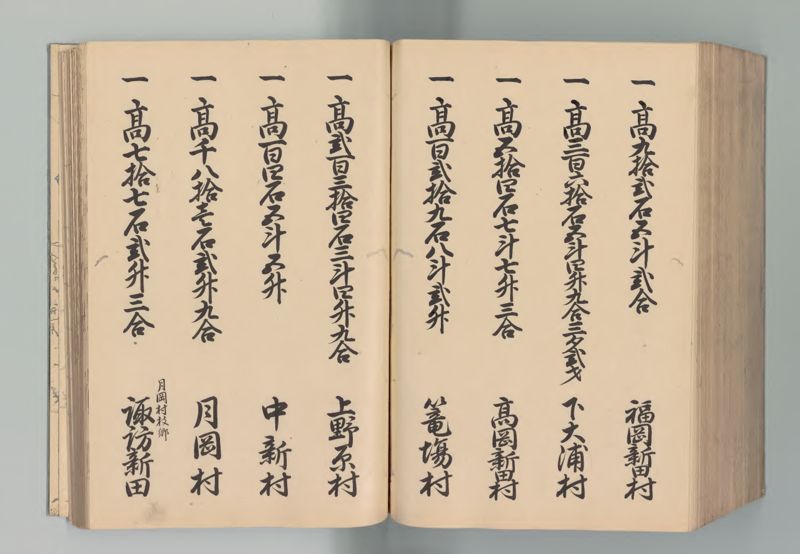 一 高九拾弐石五斗弐合 福岡新田村
一 高三百六拾石五斗四升九合三夕弐才 下大浦村
一 高五拾四石七斗七升三合 高岡新田村
一 高百弐拾九石八斗弐升 篭場村
一 高弐百三拾四石三斗四升九合 上野原村
一 高百四石五斗五升 中新村
一 高千八拾壱石弐升九合 月岡村
月岡村枝郷
一 高七拾七石弐升三合 諏訪新田